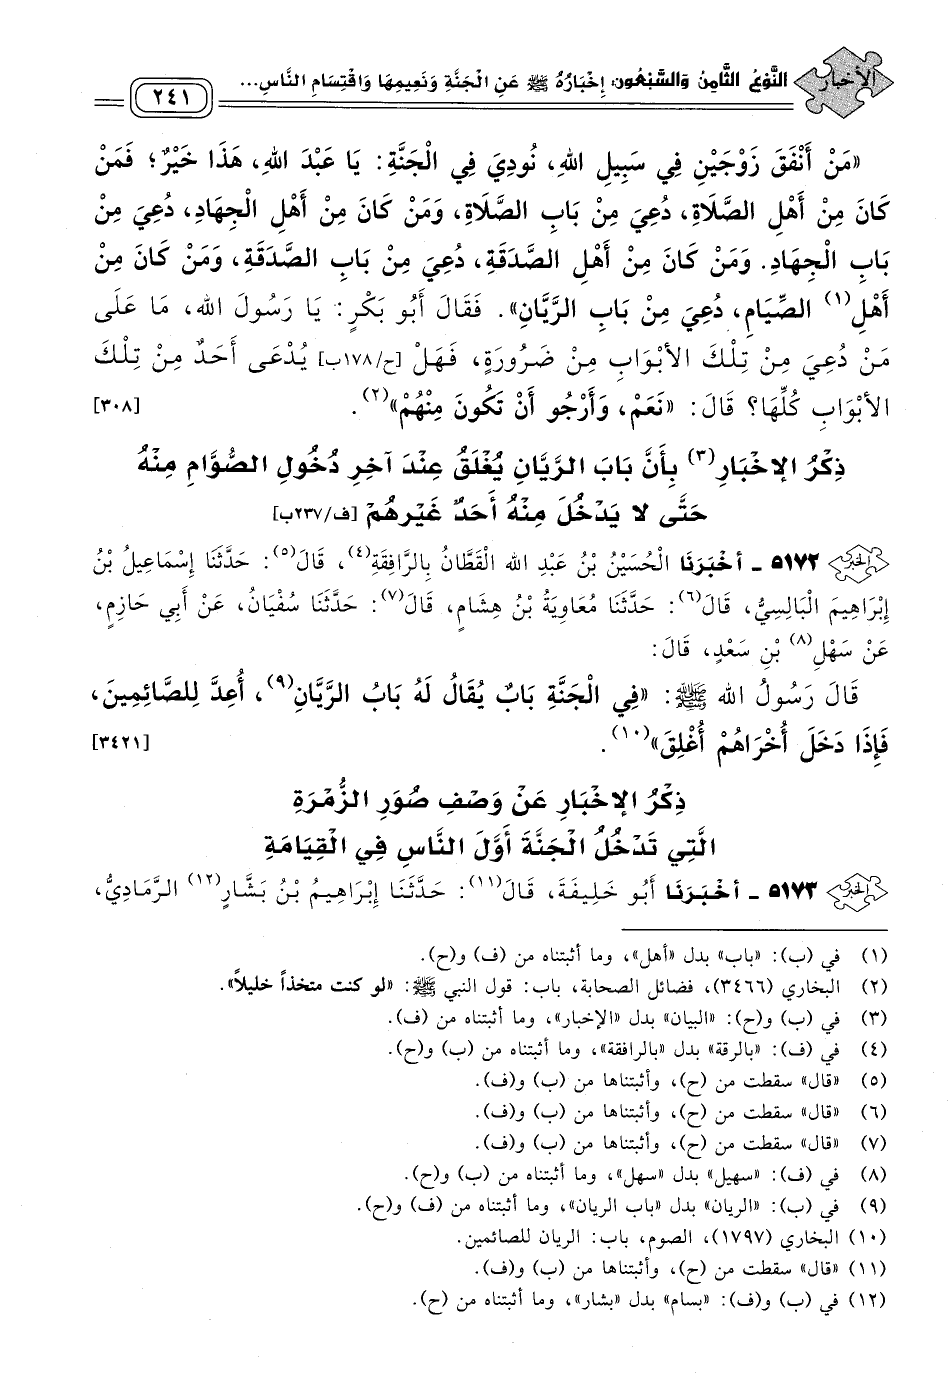 الأخبار
النَّوْعُ الثَّامِنُ وَالسَّبْعُون: إِخْبَارُهُ ﷺ عَنِ الْجَنَّةِ وَنَعِيمِهَا وَاقْتِسَامِ النَّاسِ...
٢٤١
«مَنْ أَنْفَقَ زَوْجَيْنِ فِي سَبِيلِ اللهِ، نُودِيَ فِي الْجَنَّةِ: يَا عَبْدَ اللهِ، هَذَا خَيْرٌ؛ فَمَنْ
كَانَ مِنْ أَهْلِ الصَّلَاةِ، دُعِيَ مِنْ بَابِ الصَّلَاةِ، وَمَنْ كَانَ مِنْ أَهْلِ الْجِهَادِ، دُعِيَ مِنْ
بَابِ الْجِهَادِ. وَمَنْ كَانَ مِنْ أَهْلِ الصَّدَقَةِ، دُعِيَ مِنْ بَابِ الصَّدَقَةِ، وَمَنْ كَانَ مِنْ
أَهْلِ(١) الصِّيَامِ، دُعِيَ مِنْ بَابِ الرَّيَّانِ». فَقَالَ أَبُو بَكْرٍ: يَا رَسُولَ اللهِ، مَا عَلَى
مَنْ دُعِيَ مِنْ تِلْكَ الأَبْوَابِ مِنْ ضَرُورَةٍ، فَهَلْ [ح/١٧٨ب] يُدْعَى أَحَدٌ مِنْ تِلْكَ
الأَبْوَابِ كُلِّهَا؟ قَالَ: «نَعَمْ، وَأَرْجُو أَنْ تَكُونَ مِنْهُمْ»(٢). [٣٠٨]
ذِكْرُ الإِخْبَارِ(٣) بِأَنَّ بَابَ الرَّيَّانِ يُغْلَقُ عِنْدَ آخِرِ دُخُولِ الصُّوَّامِ مِنْهُ
حَتَّى لا يَدْخُلَ مِنْهُ أَحَدٌ غَيْرهُمْ [ف/٢٣٧ب]
الخبر ٥١٧٢ - أَخْبَرَنَا الْحُسَيْنُ بْنُ عَبْدِ اللهِ الْقَطَّانُ بِالرَّافِقَةِ(٤)، قَالَ(٥): حَدَّثَنَا إِسْمَاعِيلُ بْنُ
إِبْرَاهِيمَ الْبَالِسِيُّ، قَالَ(٦): حَدَّثَنَا مُعَاوِيَةُ بْنُ هِشَامٍ، قَالَ(٧): حَدَّثَنَا سُفْيَانُ، عَنْ أَبِي حَازِمٍ،
عَنْ سَهْلِ(٨) بْنِ سَعْدٍ، قَالَ:
قَالَ رَسُولُ اللهِ ﷺ: «فِي الْجَنَّةِ بَابٌ يُقَالُ لَهُ بَابُ الرَّيَّانِ(٩)، أُعِدَّ لِلصَّائِمِينَ،
فَإِذَا دَخَلَ أُخْرَاهُمْ أُغْلِقَ»(١٠). [٣٤٢١]
ذِكْرُ الإِخْبَارِ عَنْ وَصْفِ صُوَرِ الزُّمْرَةِ
الَّتِي تَدْخُلُ الْجَنَّةَ أَوَّلَ النَّاسِ فِي الْقِيَامَةِ
الخبر ٥١٧٣ - أَخْبَرَنَا أَبُو خَلِيفَةَ، قَالَ(١١): حَدَّثَنَا إِبْرَاهِيمُ بْنُ بَشَّارٍ(١٢) الرَّمَادِيُّ،
(١) في (ب): «باب» بدل «أهل»، وما أثبتناه من (ف) و(ح).
(٢) البخاري (٣٤٦٦)، فضائل الصحابة، باب: قول النبي ﷺ: «لو كنت متخذاً خليلاً».
(٣) في (ب) و(ح): «البيان» بدل «الإخبار»، وما أثبتناه من (ف).
(٤) في (ف): «بالرقة» بدل «بالرافقة»، وما أثبتناه من (ب) و(ح).
(٥) «قال» سقطت من (ح)، وأثبتناها من (ب) و(ف).
(٦) «قال» سقطت من (ح)، وأثبتناها من (ب) و(ف).
(٧) «قال» سقطت من (ح)، وأثبتناها من (ب) و(ف).
(٨) في (ف): «سهيل» بدل «سهل»، وما أثبتناه من (ب) و(ح).
(٩) في (ب): «الريان» بدل «باب الريان»، وما أثبتناه من (ف) و(ح).
(١٠) البخاري (١٧٩٧)، الصوم، باب: الريان للصائمين.
(١١) «قال» سقطت من (ح)، وأثبتناها من (ب) و(ف).
(١٢) في (ب) و(ف): «بسام» بدل «بشار»، وما أثبتناه من (ح).